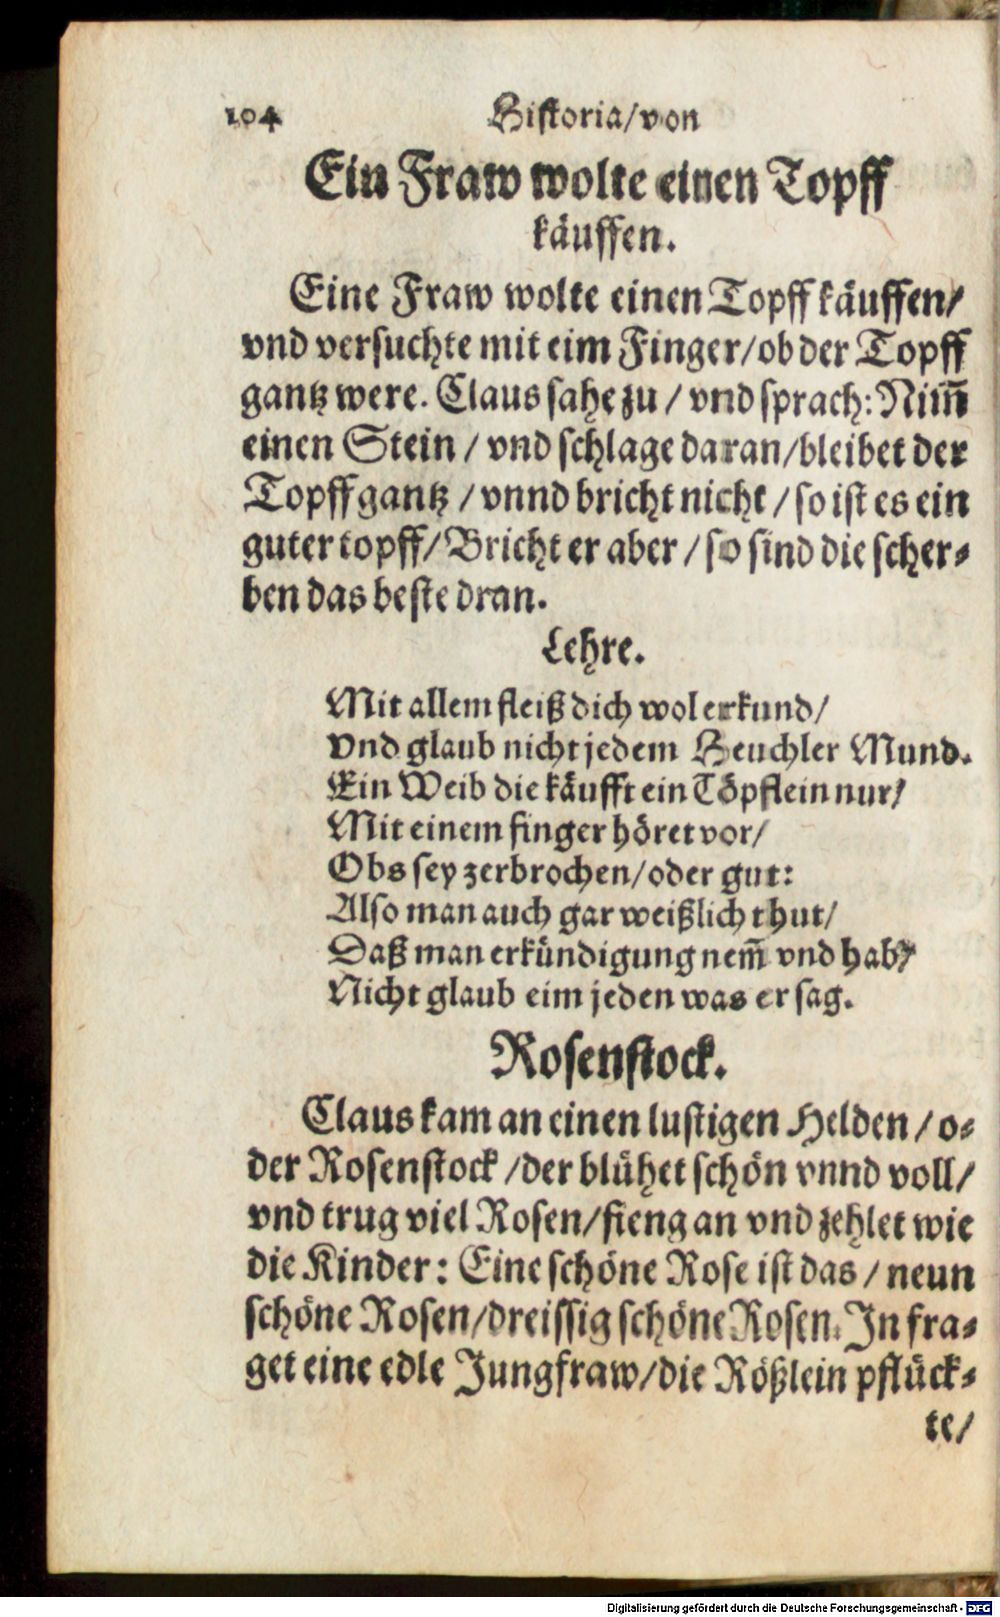 104 Historia/von
Ein Fraw wolte einen Topff
käuffen.
Eine Fraw wolte einen Topff käuffen/
vnd versuchte mit eim Finger/ob der Topff
gantz were. Claus sahe zu / vnd sprach: Nim̃
einen Stein / vnd schlage daran/bleibet der
Topff gantz / vnnd bricht nicht / so ist es ein
guter topff/Bricht er aber / so sind die scher-
ben das beste dran.
Lehre.
Mit allem fleiß dich wol erkund/
Vnd glaub nicht jedem Heuchler Mund.
Ein Weib die käufft ein Töpflein nur/
Mit einem finger höret vor/
Obs sey zerbrochen/oder gut:
Also man auch gar weißlich thut/
Daß man erkündigung nem̃ vnd hab/
Nicht glaub eim jeden was er sag.
Rosenstock.
Claus kam an einen lustigen Helden / o-
der Rosenstock /der blühet schön vnnd voll/
vnd trug viel Rosen/fieng an vnd zehlet wie
die Kinder: Eine schöne Rose ist das / neun
schöne Rosen/dreissig schöne Rosen. In fra-
get eine edle Jungfraw/die Rößlein pflück-
te/
Digitalisierung gefördert durch die Deutsche Forschungsgemeinschaft - DFG